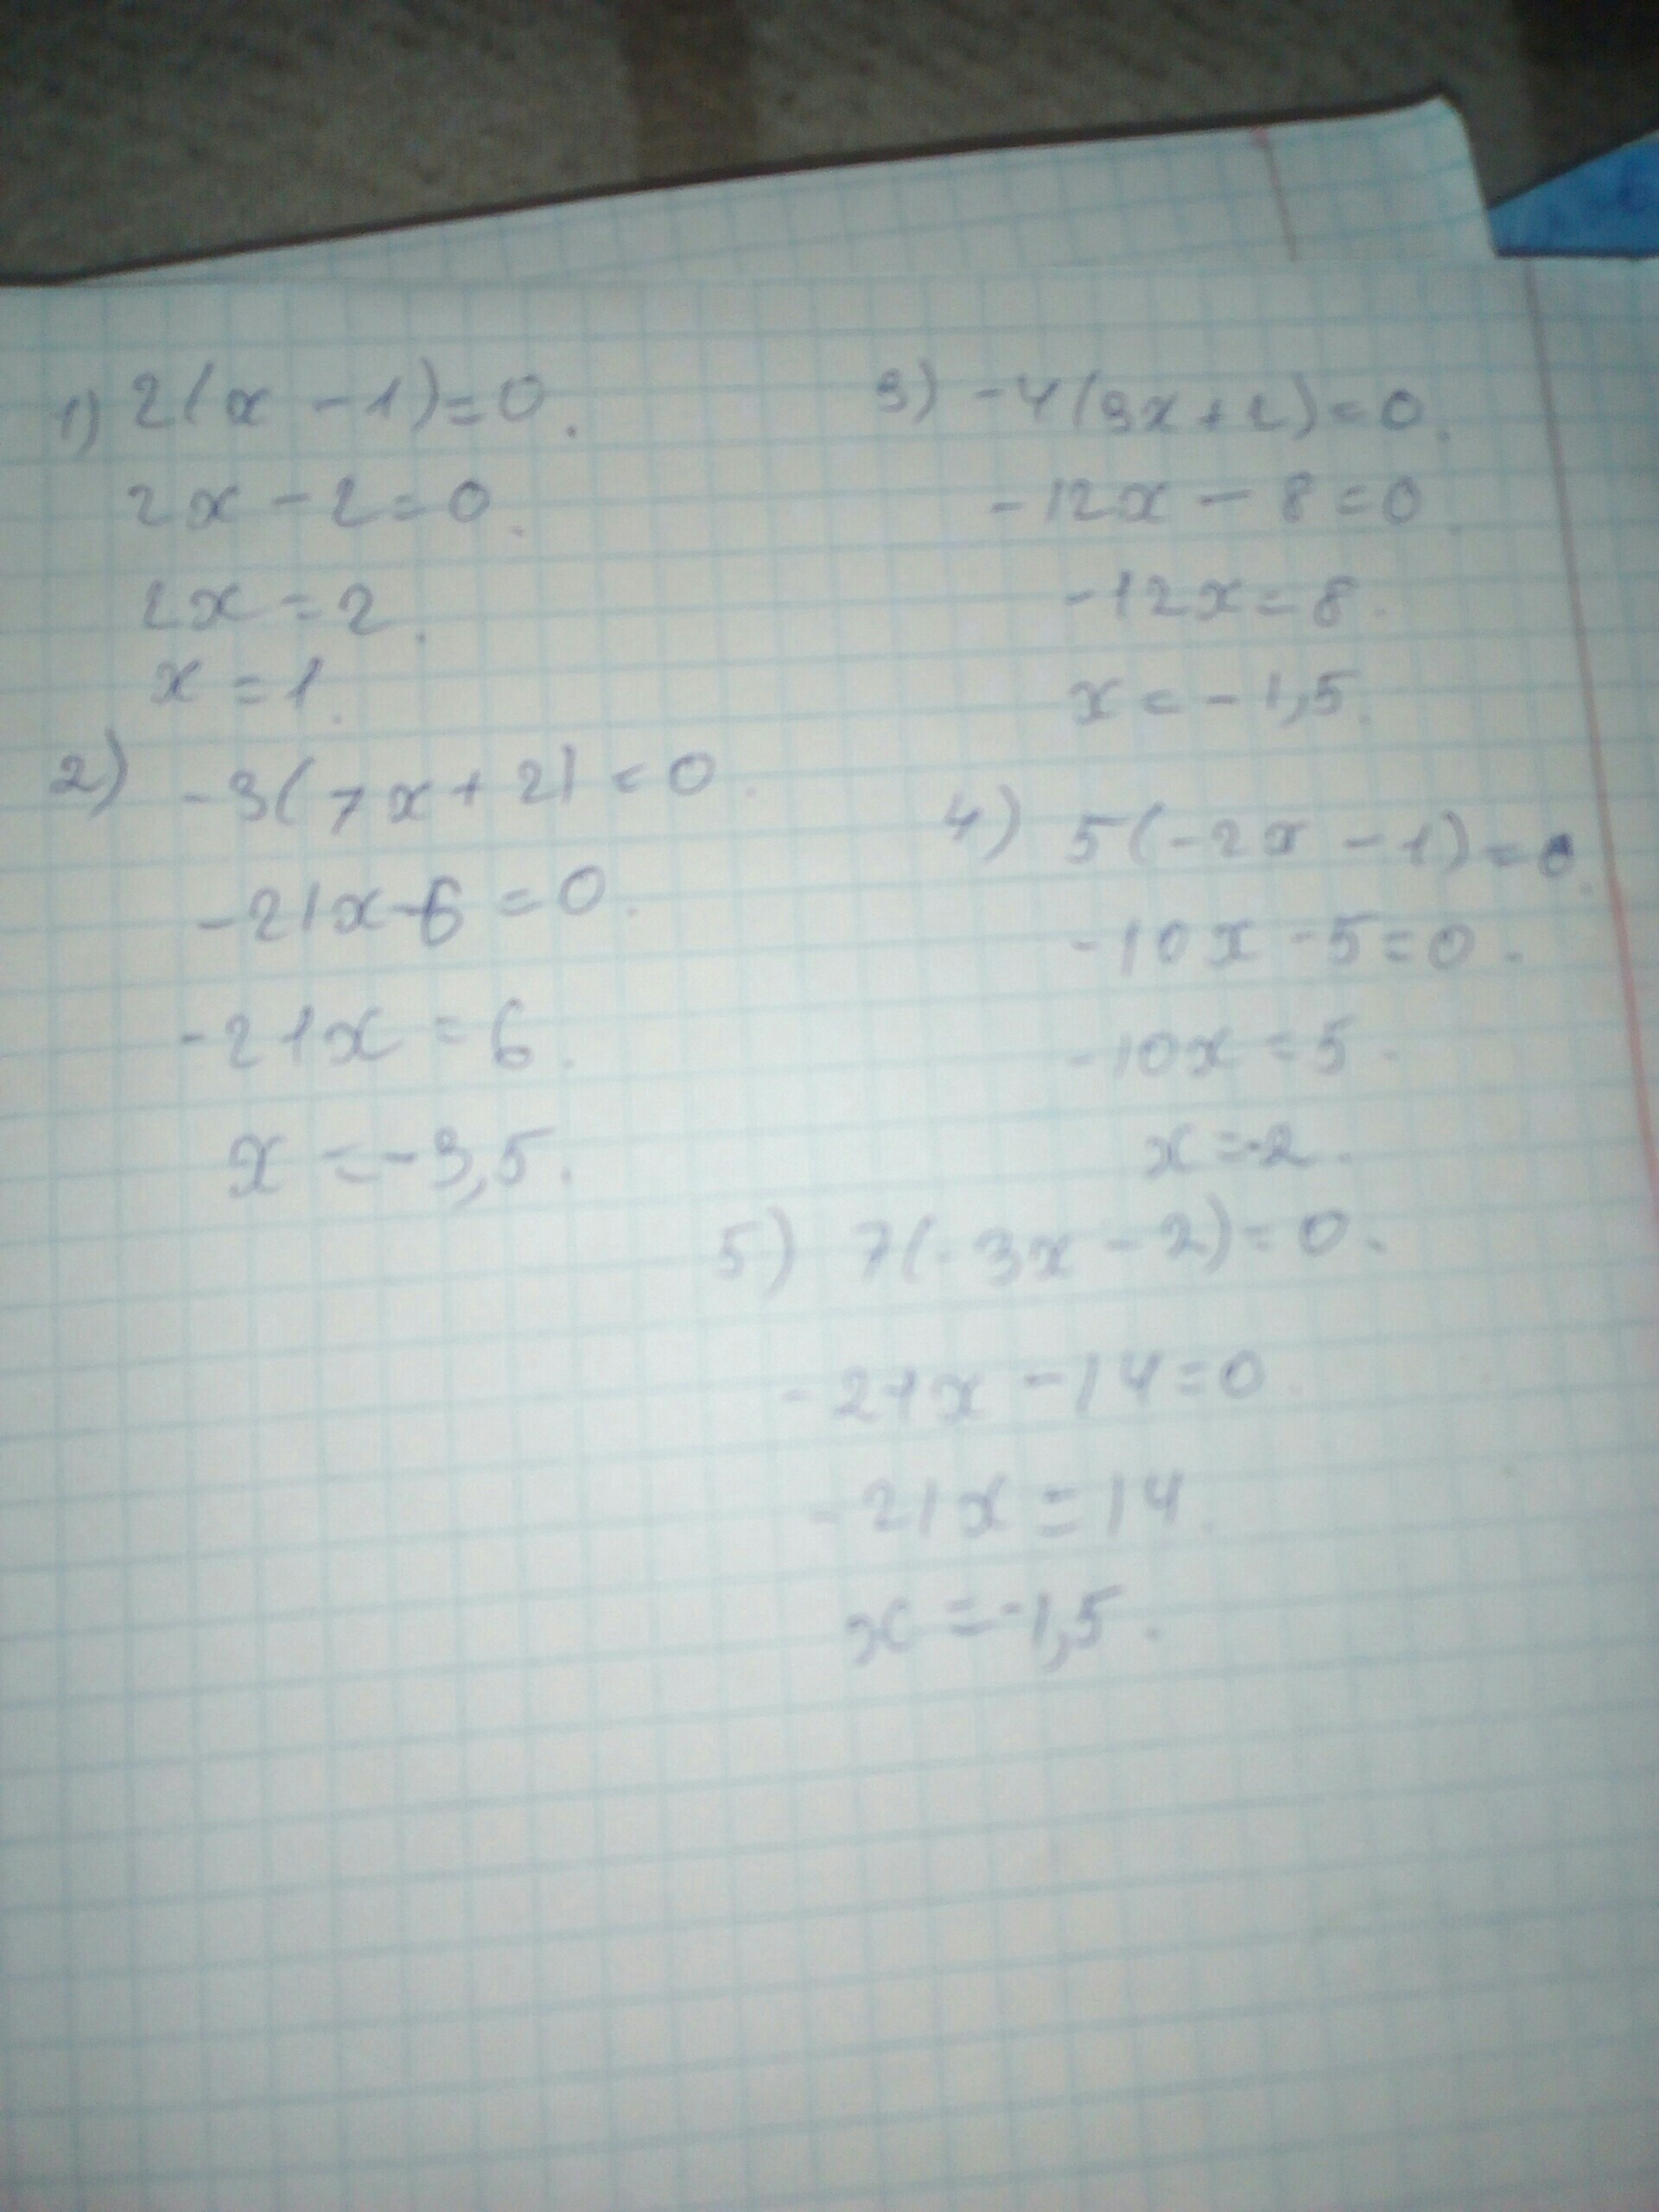 1) 2(x - 1) = 0.
2x - 2 = 0.
2x = 2.
x = 1.
2) -3(7x + 2) = 0.
-21x - 6 = 0.
-21x = 6.
x = -3,5.
3) -4(3x + 2) = 0.
-12x - 8 = 0.
-12x = 8.
x = -1,5.
4) 5(-2x - 1) = 0.
-10x - 5 = 0.
-10x = 5.
x = -2.
5) 7(-3x - 2) = 0.
-21x - 14 = 0.
-21x = 14.
x = -1,5.